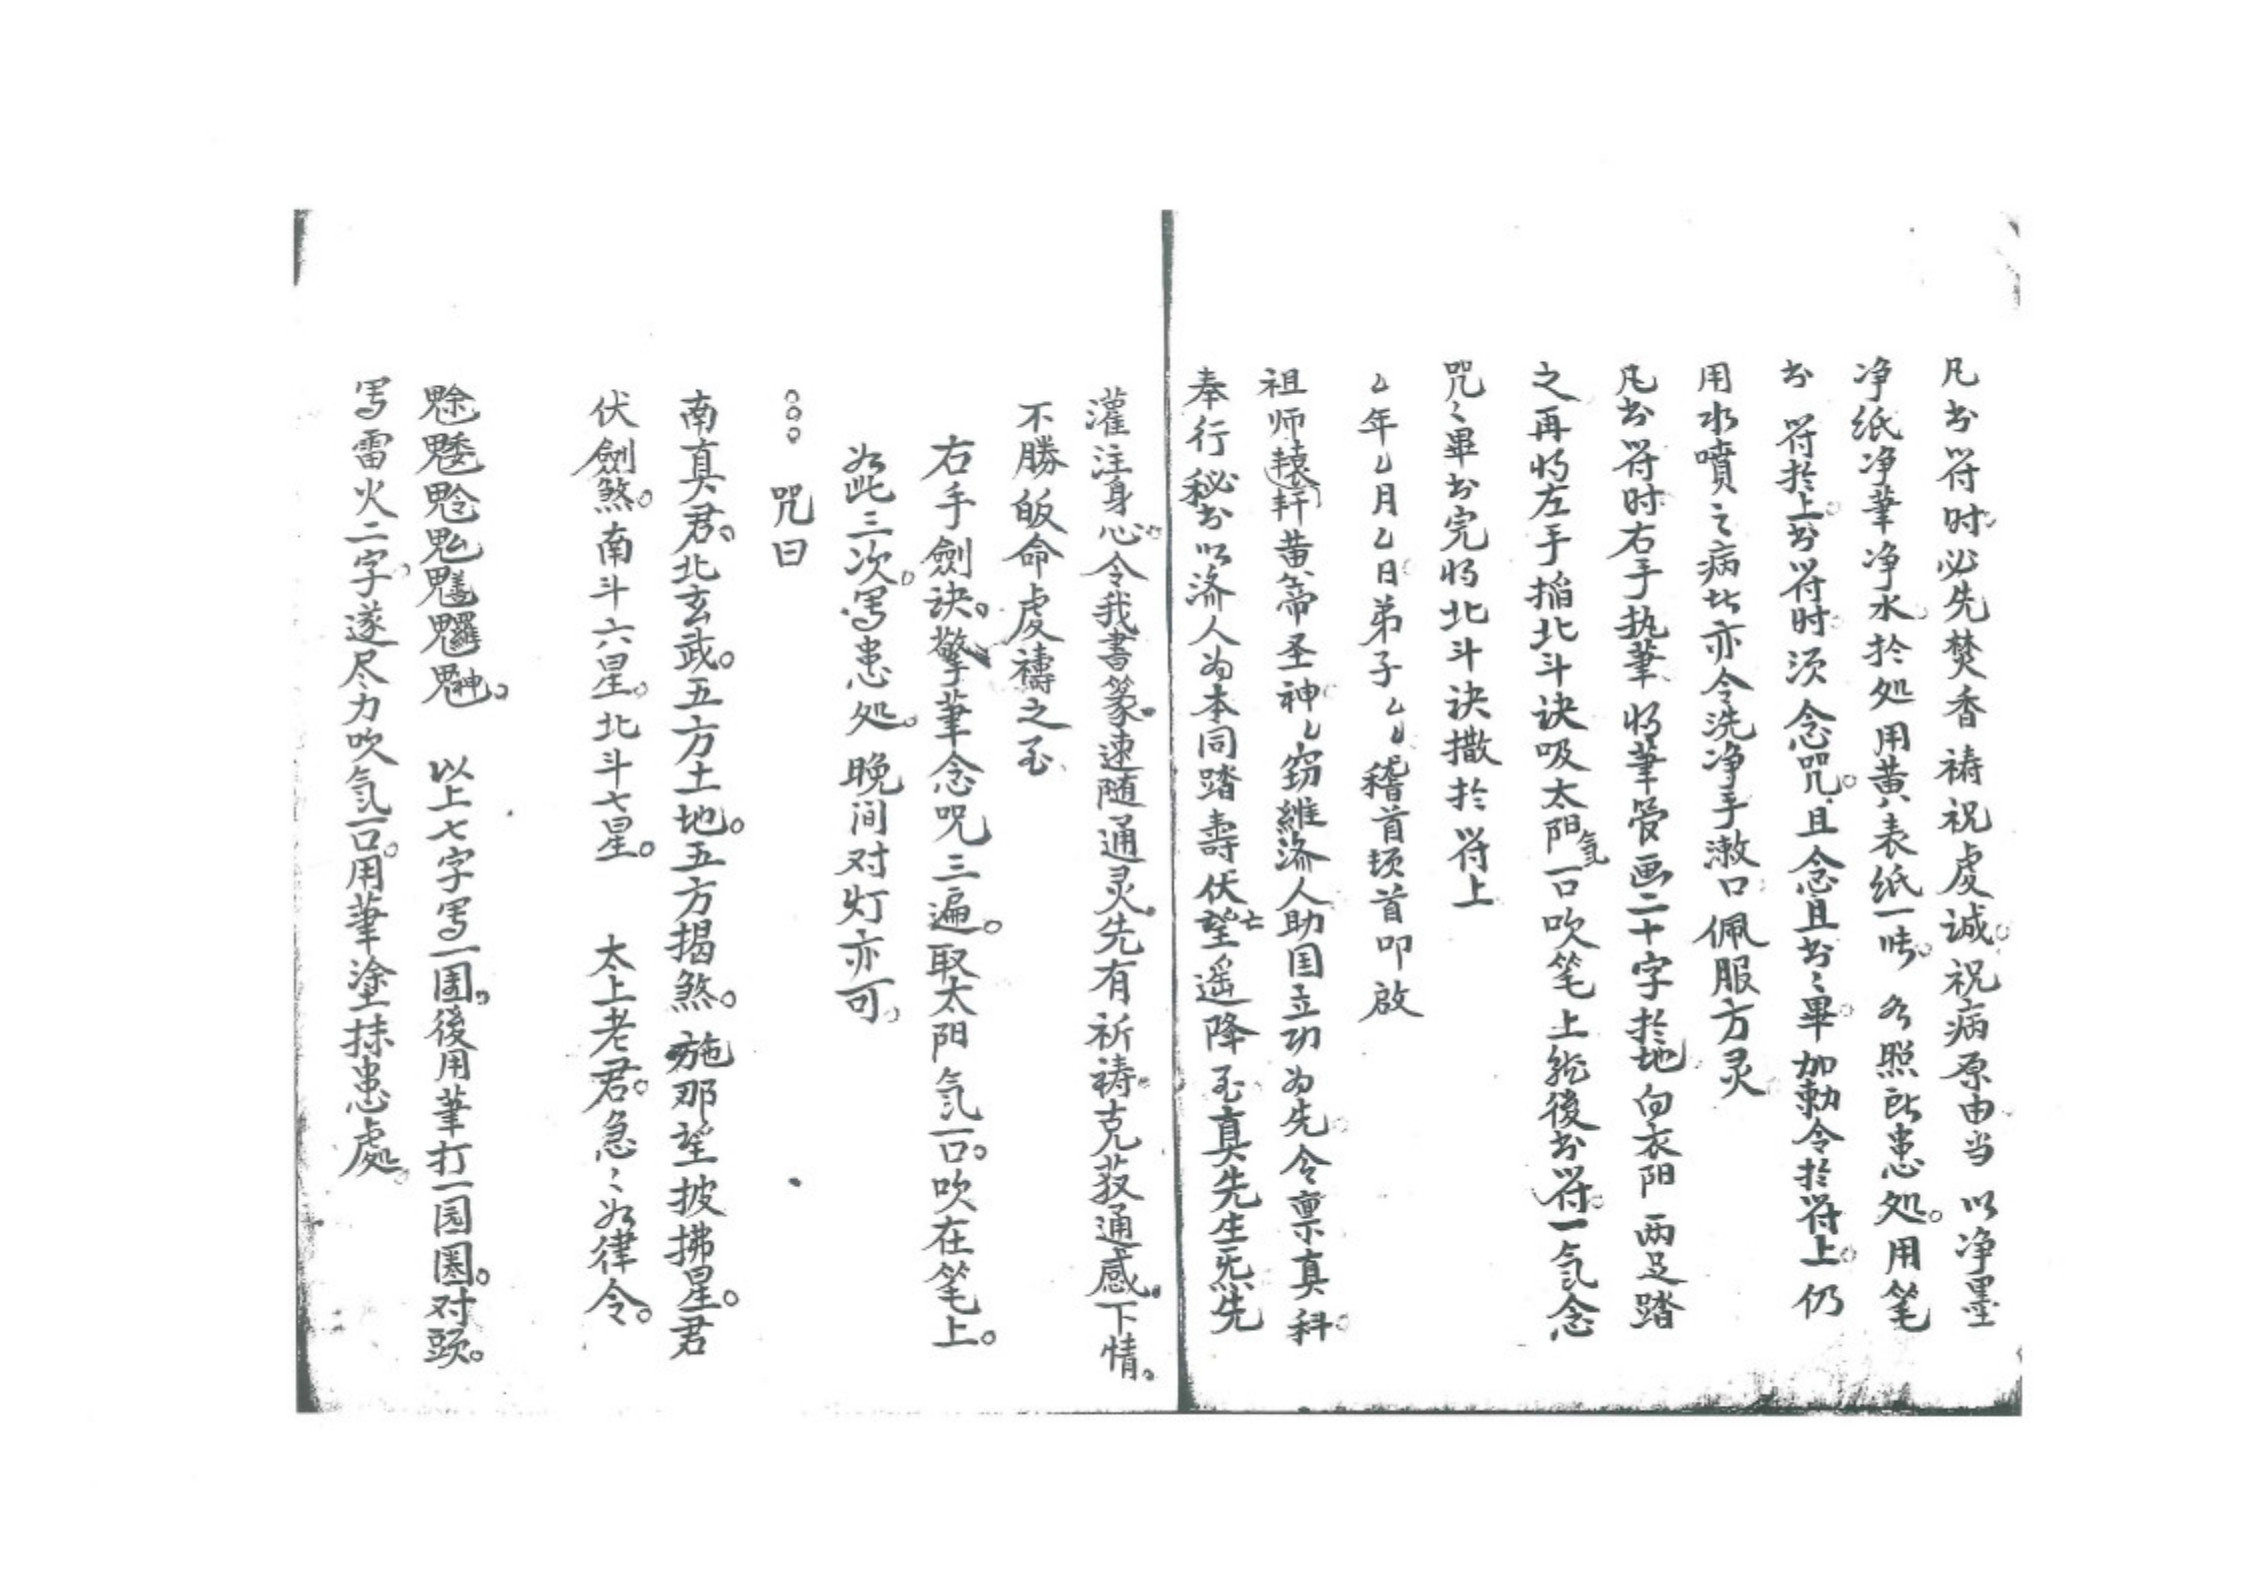 凡书符时必先焚香祷祝虔诚。祝病原由当以净墨
净纸净筆净水於处用黄表纸一怗。名照所患处。用笔
书符於上。书符时须念咒。且念且书〻畢。加勅令於符上。仍
用水噴之病者亦令洗净手漱口佩服方灵
凡书符时右手执筆将筆管画二十字於地向衣阳两足踏
之再将左手掐北斗诀吸太阳氣一口吹笔上然後书符。一氣念
咒〻畢书完将北斗诀撒於符上
厶年厶月厶日弟子厶厶稽首顿首叩啟
祖师轅轩黄帝圣神厶窃維济人助国立功为先。今禀真科。
奉行秘书以济人为本同踏壽伏望遥降至真先生炁先
灌注身心。令我書篆。速随通灵。先有祈祷。克获通感。下情。
不勝皈命虔禱之至
右手劍诀。擎筆念咒三遍。取太阳氣一口。吹在笔上。
如此三次。写患处。晚间对灯亦可。
°°° 咒曰
南真君。北玄武。五方土地。五方揭煞。施那望披拂星。君
伏劍煞。南斗六星。北斗七星。 太上老君。急〻如律令。
以上七字写一圊。後用筆打一圆圏。对頭。
写雷火二字。遂尽力吹氣一口。用筆塗抹患處。